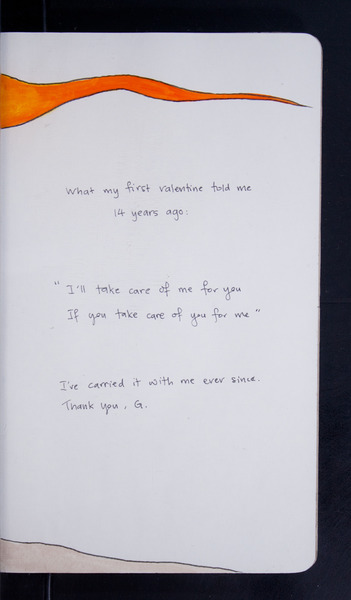 What my first valentine told me
14 years ago:
"I'll take care of me for you
If you take care of you for me"
I've carried it with me ever since.
Thank you, G.